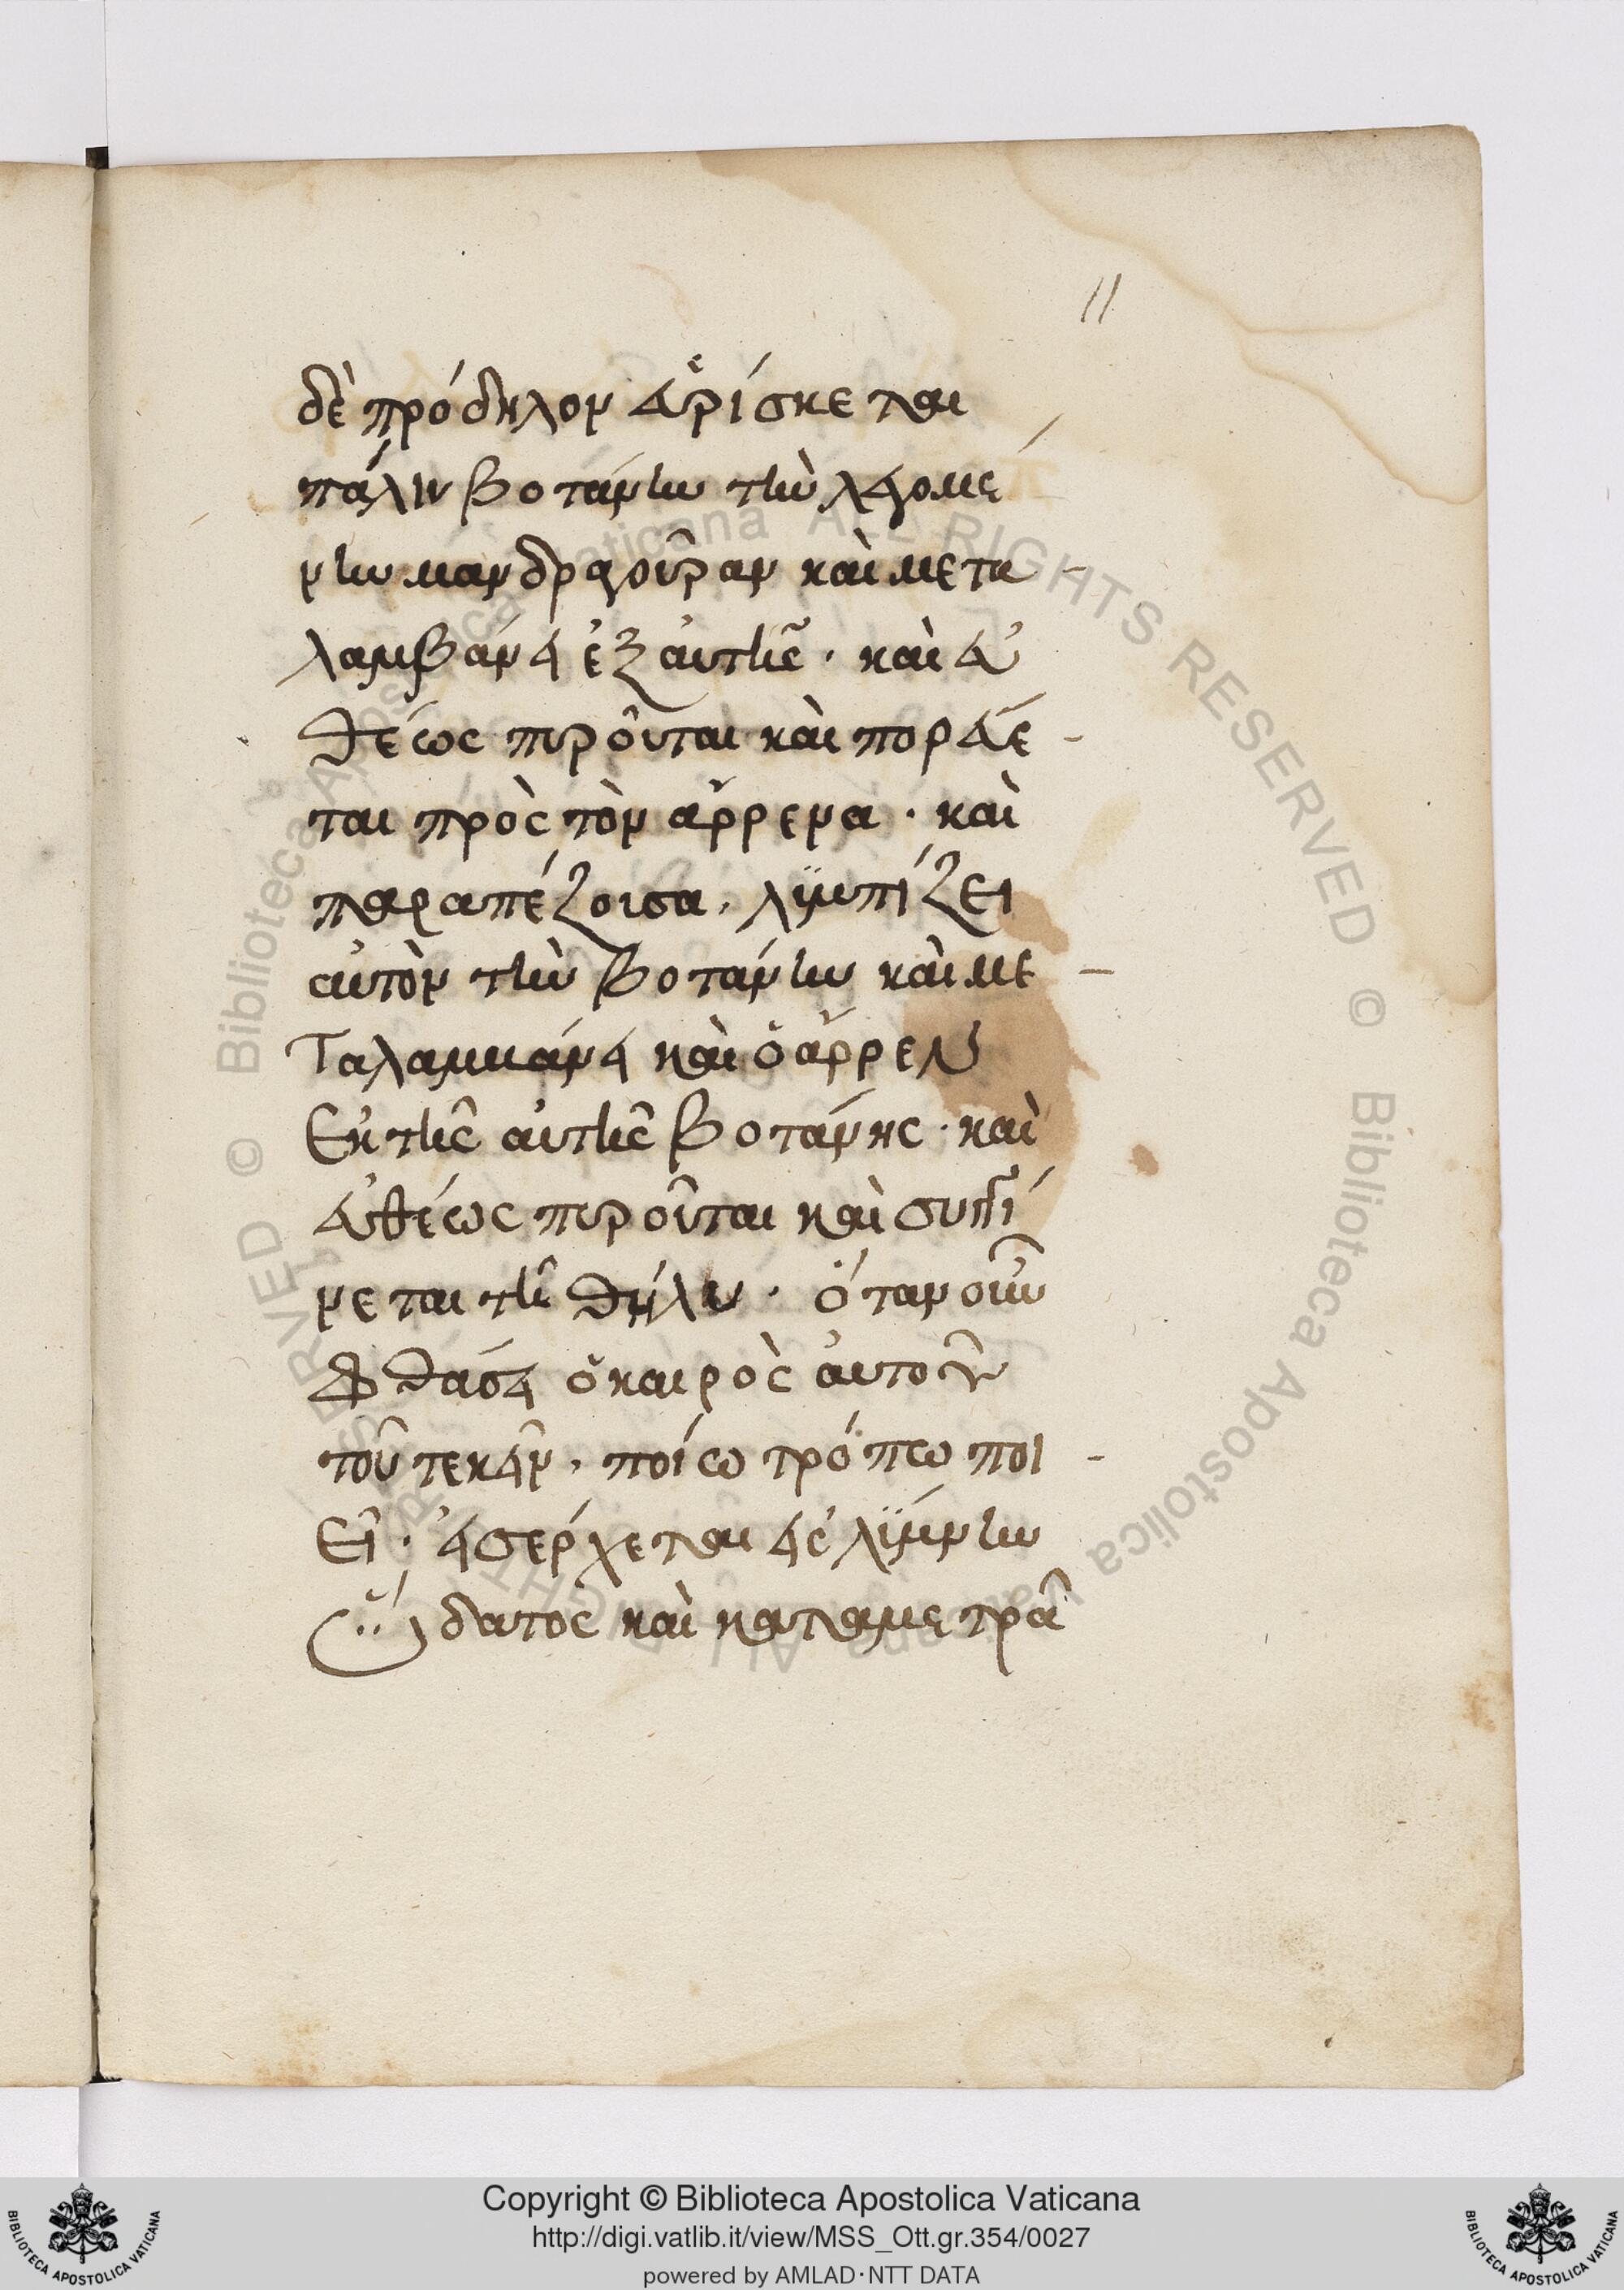 11
δὲ πρόδηλον εὑρίσκεται
πάλιν βοτάνην τὴν λεγομέ
νην μανδραγοῦραν καὶ μετα
λαμβάνει ἐξ αὐτῆς · καὶ εὐ
θέως πυροῦται καὶ πορεύε
ται πρὸς τὸν ἄρρενα · καὶ
παραπέζουσα, λιμπίζει
αὐτὸν τὴν βοτάνην καὶ με
ταλαμβάνει καὶ ὁ ἄρρεν
ἐκ τῆς αὐτῆς βοτάνης · καὶ
εὐθέως πυροῦται καὶ συγγί
νεται τῇ θήλυ · ὅταν οὖν
φθάσει ὁ καιρὸς αὐτοῦ
τοῦ τεκεῖν, ποίω τρόπω ποι
εῖ · εἰσέρχεται εἰς λίμνην
ὕδατος καὶ καταμετρᾶ
Copyright © Biblioteca Apostolica Vaticana
http://digi.vatlib.it/view/MSS_Ott.gr.354/0027
powered by AMLAD·NTT DATA
BIBLIOTECA APOSTOLICA VATICANA
BIBLIOTECA APOSTOLICA VATICANA